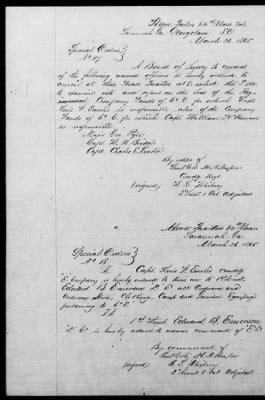 Head Quarters 54th Mass Vols
Savannah Ga.
March 26, 1865
Special Orders
No 17
A Board of Survey to consist
of the following named officers is hereby ordered to
convene at these Head Quarters at
to examine into and report on the loss of the
Company Funds of Co E for which Capt
Luis F. Emilio is responsible also of the Company
Funds of Co for which Capt. William H. Homans
is responsible
Major Geo Pope
Capt. H. N. Bridge
Capt. Charles E. Tucker
By order of
Lieut Col H. N. Hooper
Comdg Regt
(signed) W. L. Whitney
2d Lieut & Act Adjutant
Head Quarters 54th Mass
Savannah, Ga
March 26 1865
Special Orders
No 18
I. Capt. Luis F. Emilio comdg
E Company is hereby ordered to turn over to 1st Lieut.
Edward B. Emerson all Ordnance and
Ordnance Stores, Clothing, Camp and Garrison Equipage
pertaining to Co E.
II.
1st Lieut Edward B. Emerson
is hereby ordered to assume command of Co E
By command of
Lieut Col H. N. Hooper
(signed) W. L. Whitney
2 Lieut & Act Adjutant